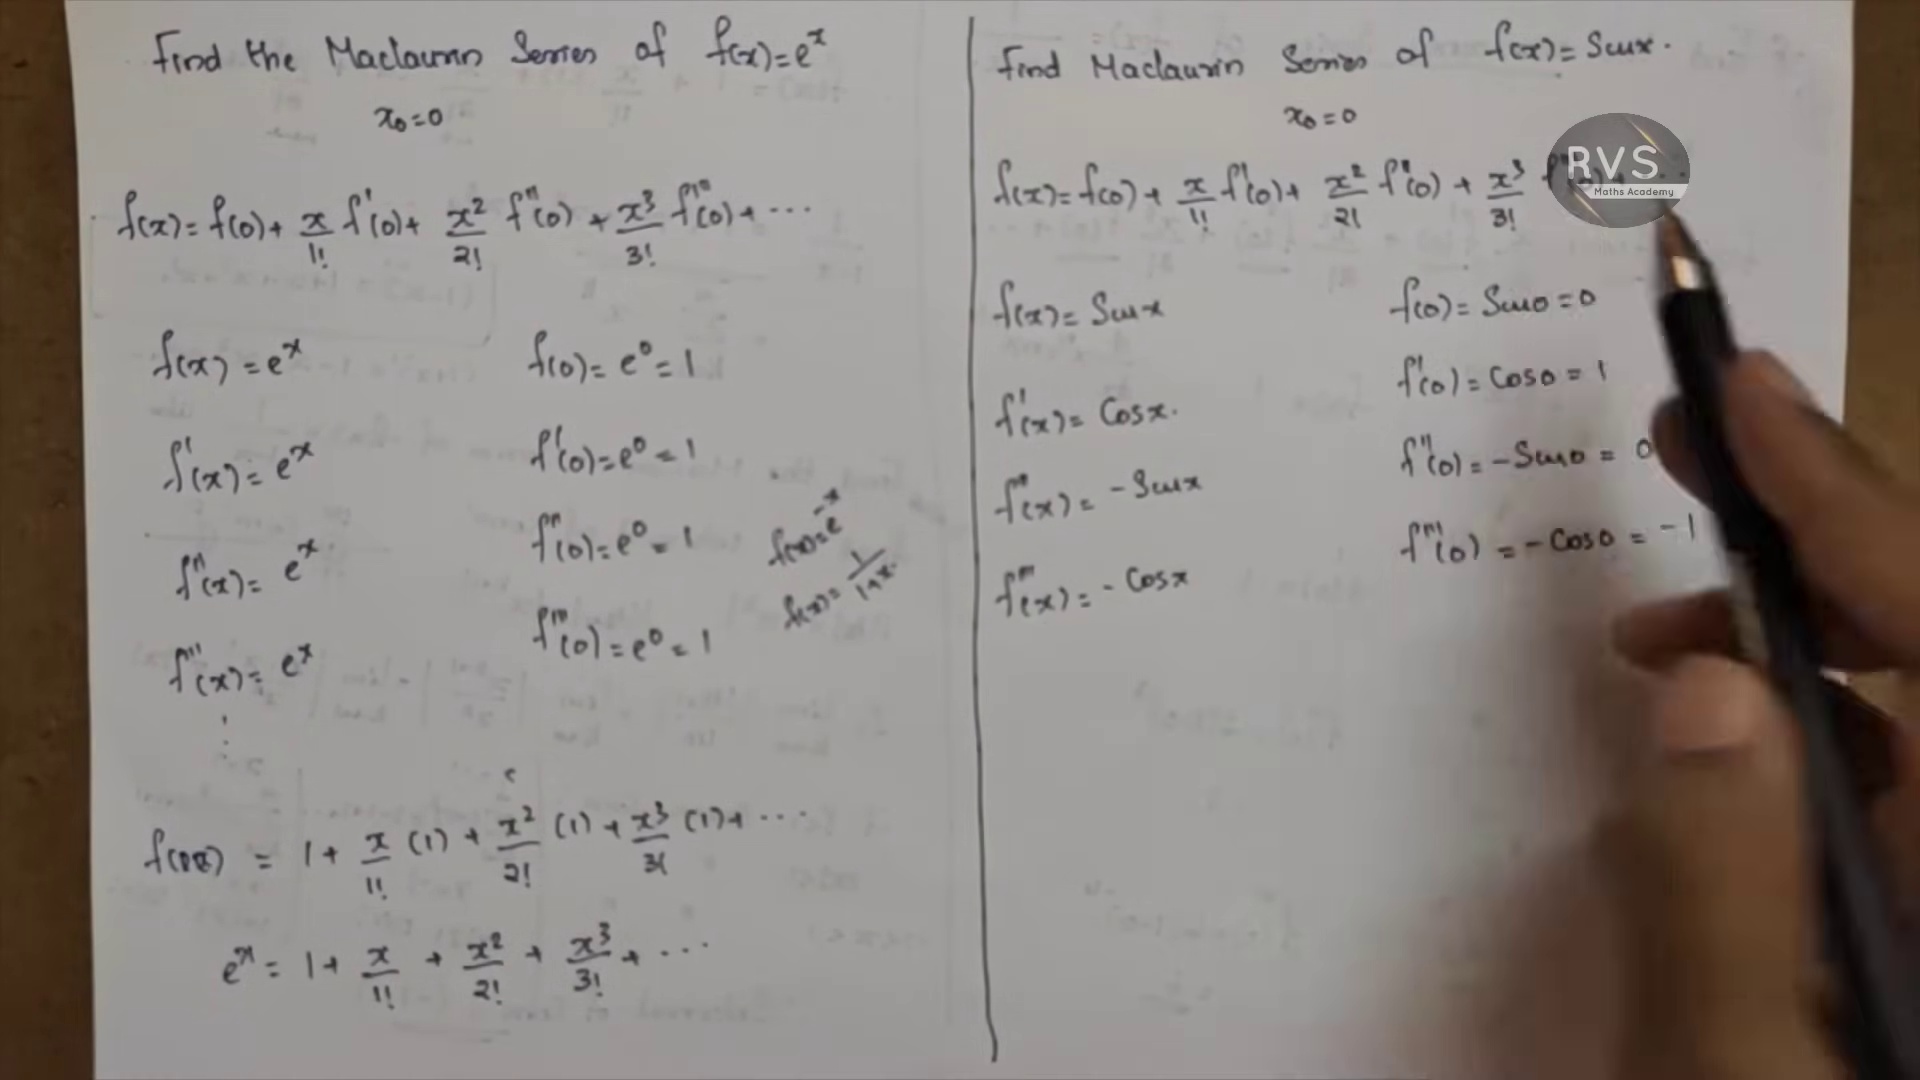 Find the Maclaurin Series of f(x)=e^x
x₀=0
f(x)=f(0)+ x/1! f'(0)+ x²/2! f''(0) + x³/3! f'''(0)+ ...
f(x) = e^x
f(0)= e⁰ = 1
f'(x)= e^x
f'(0)=e⁰ = 1
f''(x)= e^x
f''(0)=e⁰ = 1
f'''(x)= e^x
f'''(0)=e⁰ = 1
f(x)=e^-x
f(x)= 1/1+x.
= 1+ x/1! (1) + x²/2! (1) + x³/3! (1)+ ...
e^x = 1+ x/1! + x²/2! + x³/3! + ...
Find Maclaurin Series of f(x)= Sinx.
x₀=0
f(x)=f(0)+ x/1! f'(0)+ x²/2! f''(0) + x³/3!
RVS
Maths Academy
f(x)= Sinx
f(0)= Sin0 = 0
f'(x)= Cosx.
f'(0)= Cos0 = 1
f''(x)= -Sinx
f''(0)= -Sin0 = 0
f'''(x)= - Cosx
f'''(0) = -Cos0 = -1